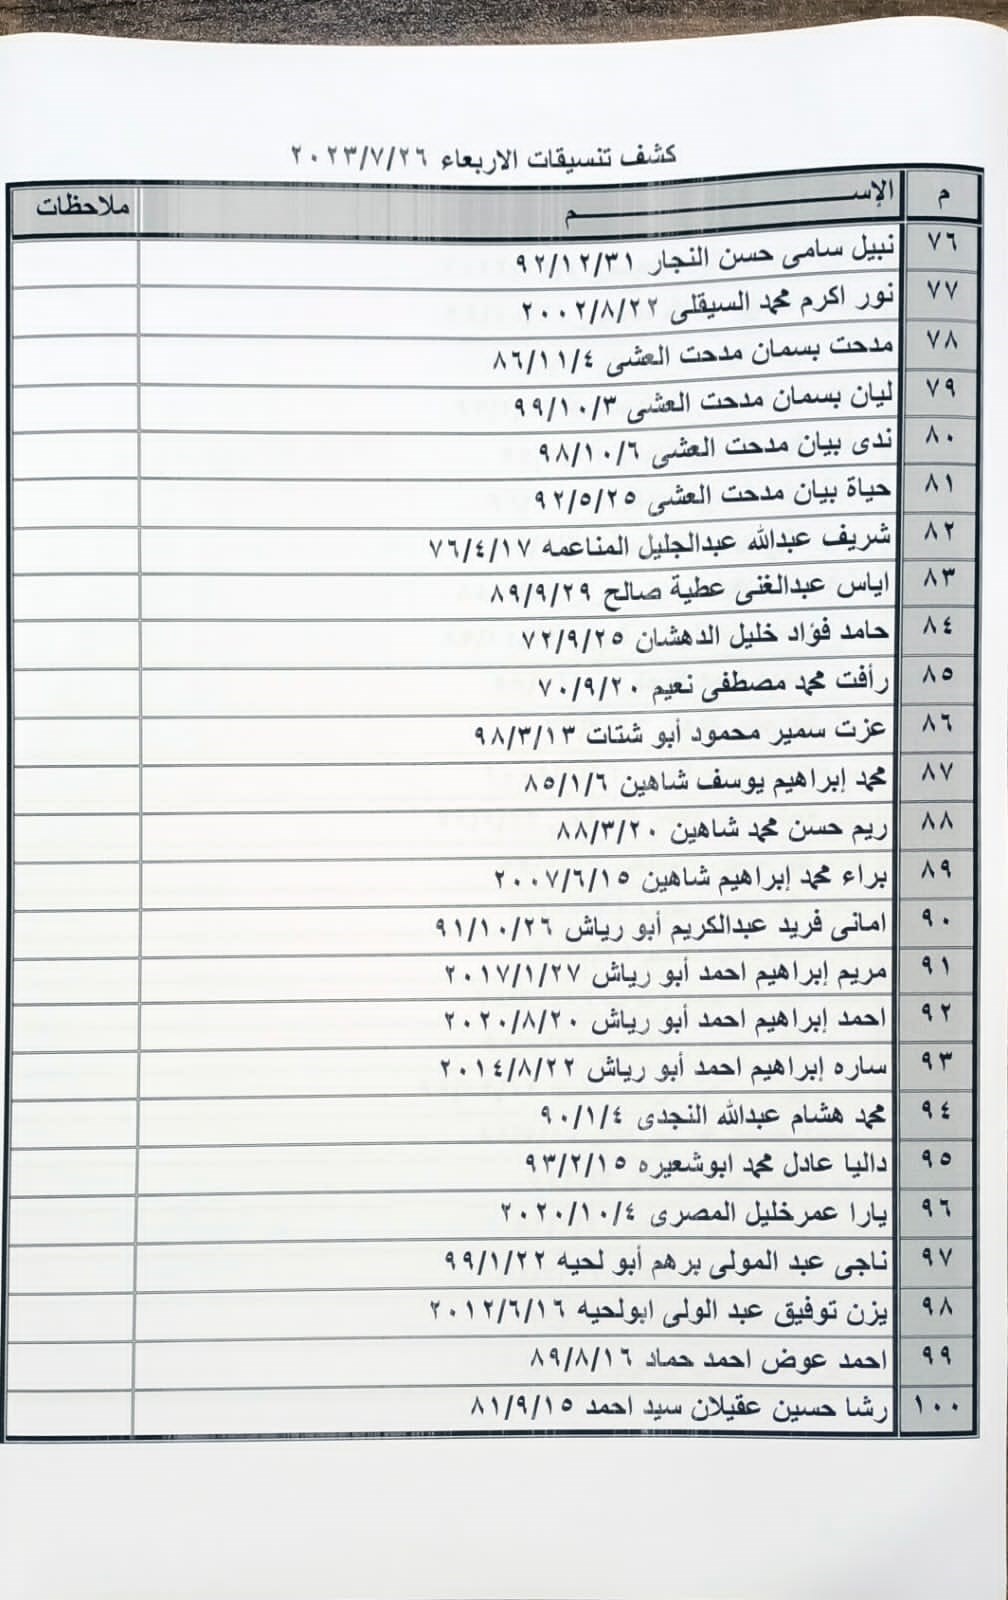 كشف تنسيقات الاربعاء ٢٠٢٣/٧/٢٦
م الإســــــم ملاحظات
٧٦ نبيل سامى حسن النجار ٩٢/١٢/٣١
٧٧ نور اكرم محمد السيقلى ٢٠٠٢/٨/٢٢
٧٨ مدحت بسمان مدحت العشى ٨٦/١١/٤
٧٩ ليان بسمان مدحت العشى ٩٩/١٠/٣
٨٠ ندى بيان مدحت العشى ٩٨/١٠/٦
٨١ حياة بيان مدحت العشى ٩٢/٥/٢٥
٨٢ شريف عبدالله عبدالجليل المناعمه ٧٦/٤/١٧
٨٣ اياس عبدالغنى عطية صالح ٨٩/٩/٢٩
٨٤ حامد فؤاد خليل الدهشان ٧٢/٩/٢٥
٨٥ رأفت محمد مصطفى نعيم ٧٠/٩/٢٠
٨٦ عزت سمير محمود أبو شتات ٩٨/٣/١٣
٨٧ محمد إبراهيم يوسف شاهين ٨٥/١/٦
٨٨ ريم حسن محمد شاهين ٨٨/٣/٢٠
٨٩ براء محمد إبراهيم شاهين ٢٠٠٧/٦/١٥
٩٠ امانى فريد عبدالكريم أبو رياش ٩١/١٠/٢٦
٩١ مريم إبراهيم احمد أبو رياش ٢٠١٧/١/٢٧
٩٢ احمد إبراهيم احمد أبو رياش ٢٠٢٠/٨/٢٠
٩٣ ساره إبراهيم احمد أبو رياش ٢٠١٤/٨/٢٢
٩٤ محمد هشام عبدالله النجدى ٩٠/١/٤
٩٥ داليا عادل محمد ابوشعيره ٩٣/٢/١٥
٩٦ يارا عمرخليل المصرى ٢٠٢٠/١٠/٤
٩٧ ناجى عبد المولى برهم أبو لحيه ٩٩/١/٢٢
٩٨ يزن توفيق عبد الولى ابولحيه ٢٠١٢/٦/١٦
٩٩ احمد عوض احمد حماد ٨٩/٨/١٦
١٠٠ رشا حسين عقيلان سيد احمد ٨١/٩/١٥